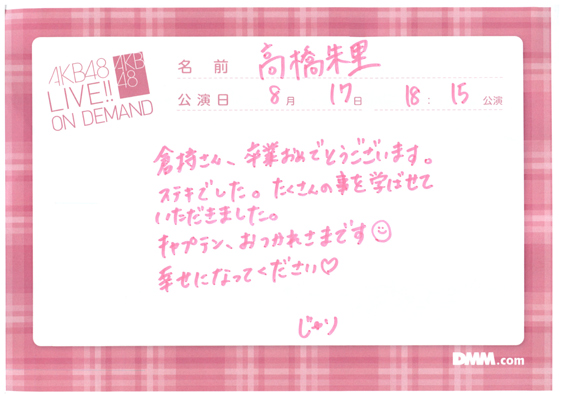 AKB48
LIVE!!
ON DEMAND
AKB
48
名前 高橋朱里
公演日 8月 17日 18:15 公演
倉持さん、卒業おめでとうございます。
ステキでした。たくさんの事を学ばせて
いただきました。
キャプテン、おつかれさまです
幸せになってください♡
じゅり
DMM.com